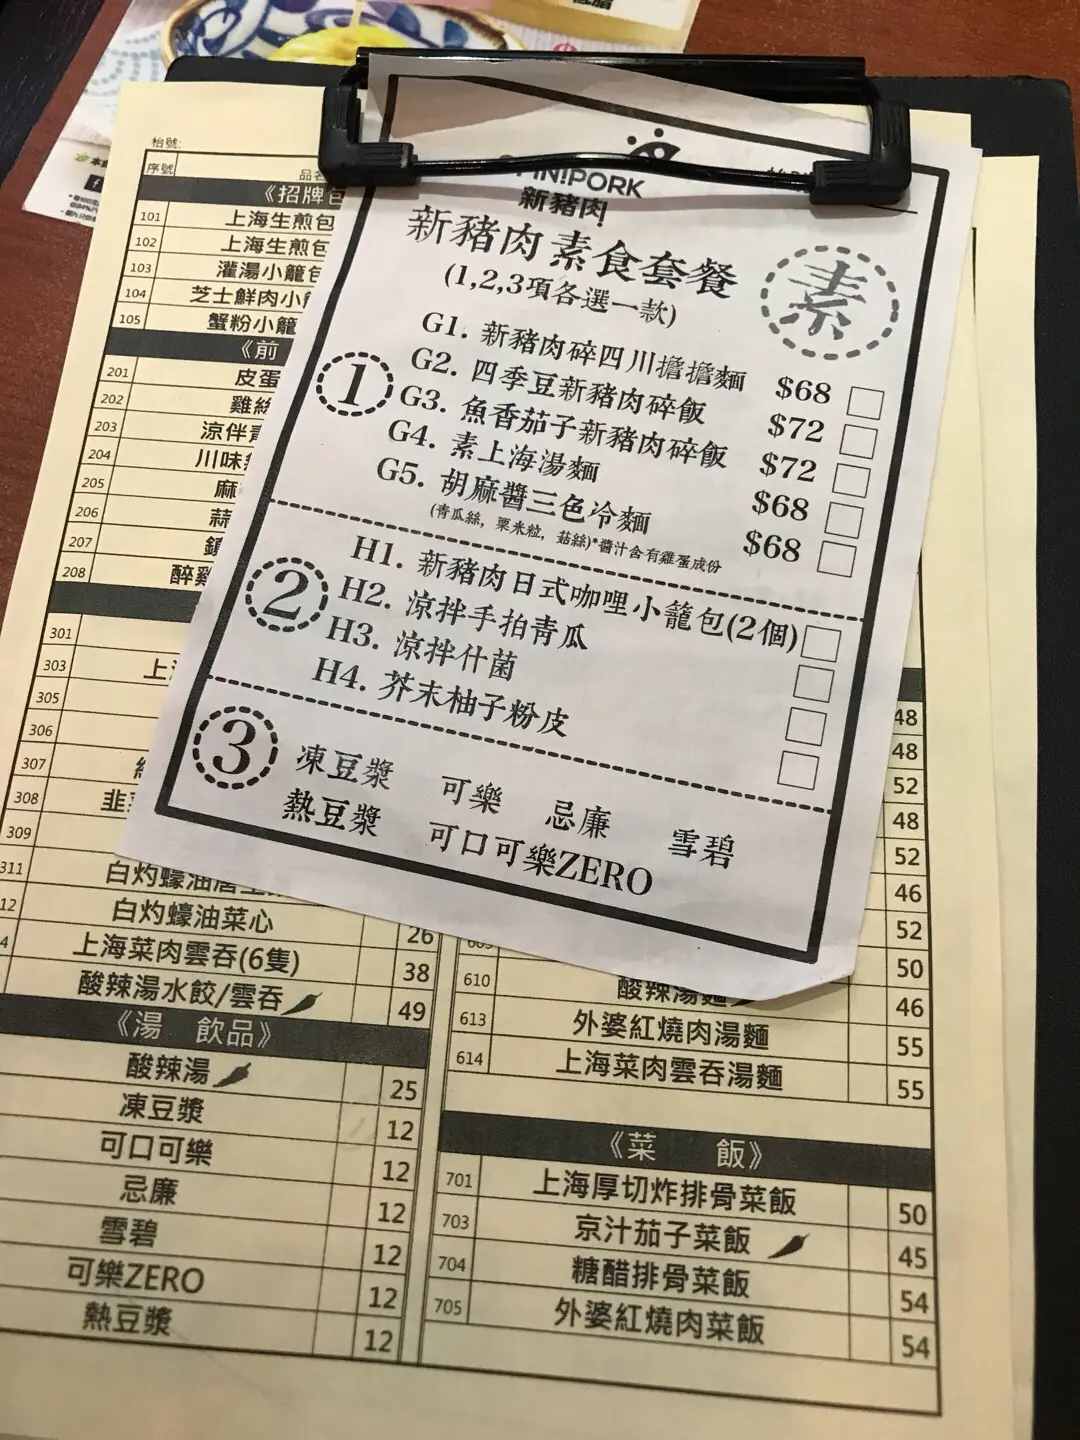 新豬肉
新豬肉素食套餐
素
(1,2,3項各選一款)
1
G1. 新豬肉碎四川擔擔麵 $68
G2. 四季豆新豬肉碎飯 $72
G3. 魚香茄子新豬肉碎飯 $72
G4. 素上海湯麵 $68
G5. 胡麻醬三色冷麵 $68
(青瓜絲, 粟米粒, 菇絲)*醬汁含有雞蛋成份
2
H1. 新豬肉日式咖哩小籠包(2個)
H2. 涼拌手拍青瓜
H3. 涼拌什菌
H4. 芥末柚子粉皮
3
凍豆漿 可樂 忌廉 雪碧
熱豆漿 可口可樂ZERO
枱號:
序號
《招牌包
101 上海生煎包
102 上海生煎包
103 灌湯小籠包
104 芝士鮮肉小
105 蟹粉小籠
《前
201 皮蛋
202 雞絲
203 涼伴
204 川味
205 麻
206 蒜
207
208 醉雞
301
303 上
305
306
307
308 韭
309
311 白灼蠔油
12 白灼蠔油菜心 26
4 上海菜肉雲吞(6隻) 38
酸辣湯水餃/雲吞 49
《湯 飲品》
酸辣湯 25
凍豆漿 12
可口可樂 12
忌廉 12
雪碧 12
可樂ZERO 12
熱豆漿 12
48
48
52
48
52
46
52
50
610 酸辣湯麵 46
613 外婆紅燒肉湯麵 55
614 上海菜肉雲吞湯麵 55
《菜 飯》
701 上海厚切炸排骨菜飯 50
703 京汁茄子菜飯 45
704 糖醋排骨菜飯 54
705 外婆紅燒肉菜飯 54